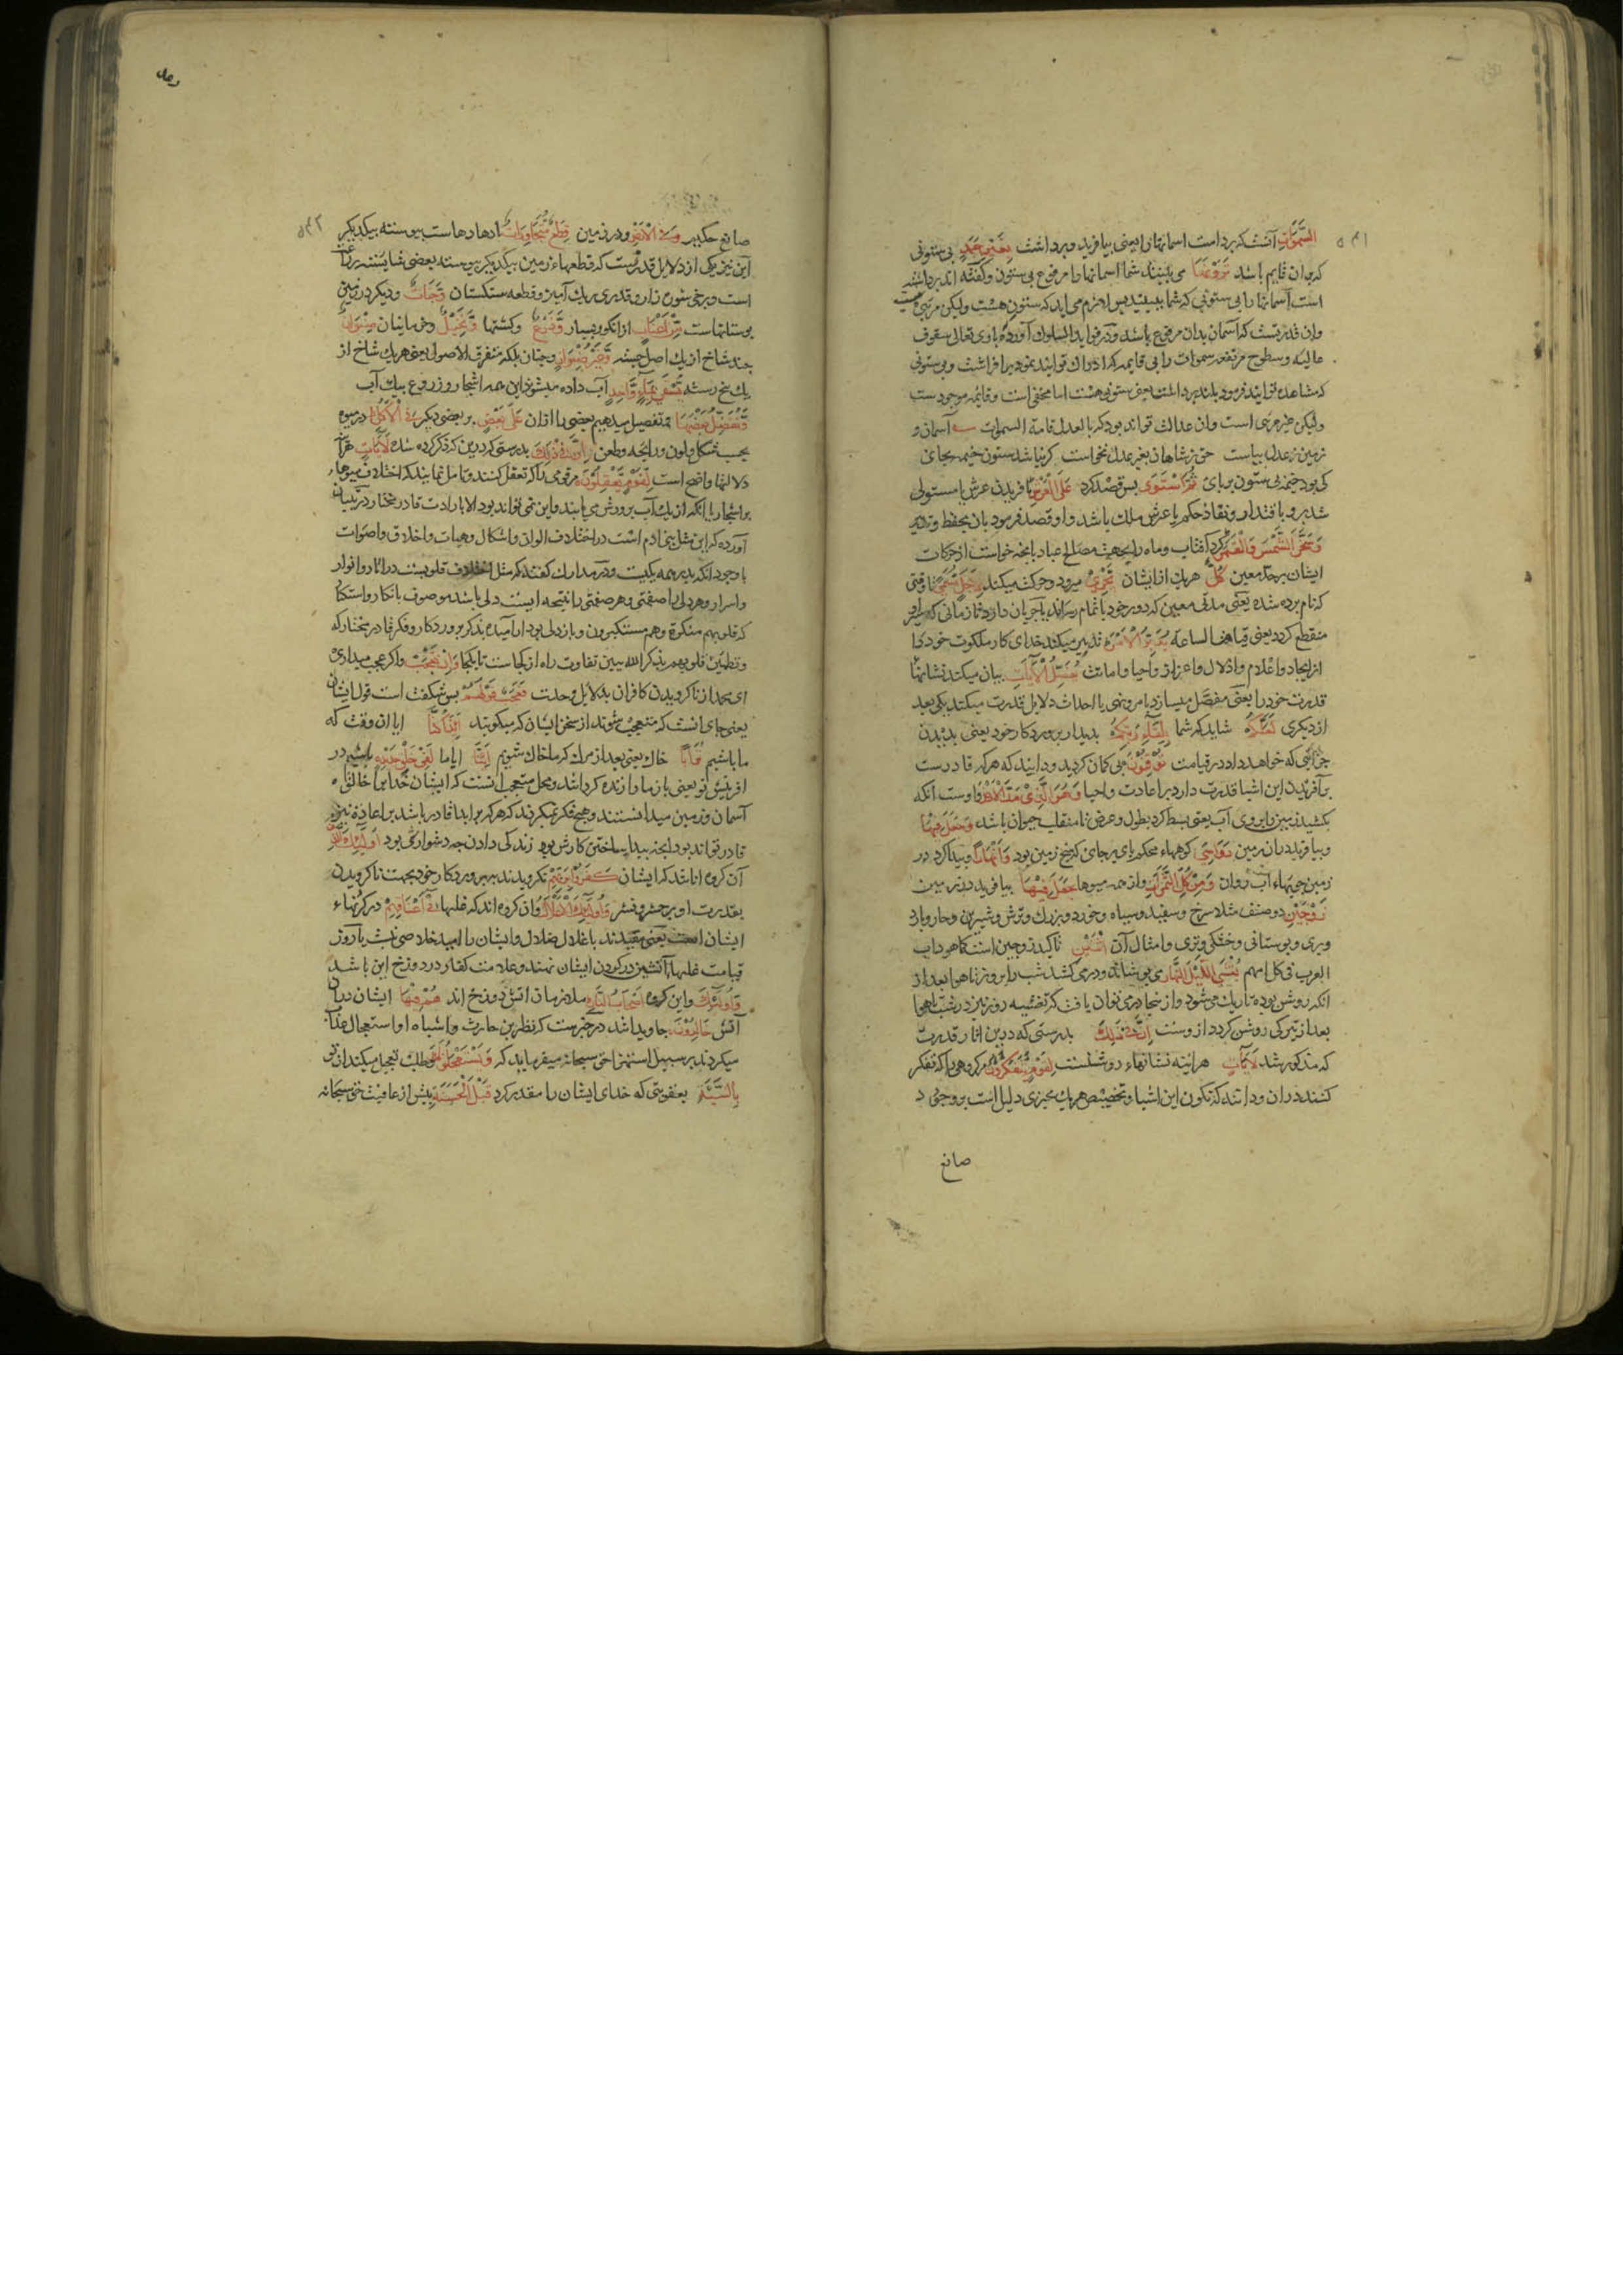 ۵۴۱
السَّمٰوَاتِ آنست که برداشت اسمانها را یعنی بیافرید و برداشت بِغَیْرِ عَمَدٍ بی ستونی
که بدان قایم باشد تَرَوْنَهَا می بینید شما اسمانها را مرفوع بی ستون و گفته اند برداشته
است آسمانها را بی ستونی که شما ببینید پس لازم می اید که ستون هست ولیکن مرئی نیست
وان قدرتست که اسمان بدان مرفوع باشد و در فواید السلوک آورده که باری تعالی سقوف
عالیه و سطوح مرتفعه سموات را بی قایمه که ادراک توانید نمود برافراشت و بی ستونی
که مشاهده توانید فرمود بلند برداشت یعنی ستونی هست اما مخفی است و قایمه موجودست
ولیکن غیر مرئی است وان عدالت تواند بود که بالعدل قامة السموات آسمان و
زمین ز عدل بپاست حق ز شاهان بغیر عدل نخواست گر نباشد ستون خیمه بجای
کی بود خیمه بی ستون بر پای ثُمَّ اسْتَوٰی پس قصد کرد عَلَی الْعَرْشِ بافریدن عرش یا مستولی
شد برو باقتدار و نفاذ حکم یا عرش ملک باشد و او قصد فرمود بان بحفظ و تدبیر
وَسَخَّرَ الشَّمْسَ وَالْقَمَرَ کرد آفتاب و ماه را بجهت مصالح عباد بانچه خواست از حرکات
ایشان بر حد معین کُلٌّ هریک از ایشان یَجْرِیْ میرود و حرکت میکند لِاَجَلٍ مُسَمًّی تا وقتی
که نام برده شده یعنی مدتی معین که دور خود باتمام رساند یا جریان دارد تا زمانی که سیر او
منقطع گردد یعنی قیام الساعه یُدَبِّرُ الْاَمْرَ تدبیر میکند خدای کار ملکوت خود را
از ایجاد و اعدام و اذلال و اعزاز و احیا و اماتت یُفَصِّلُ الْاٰیَاتِ بیان میکند نشانهای
قدرت خود را یعنی مفصل میسازد بامر و نهی یا احداث دلایل قدرت میکند یکی بعد
از دیگری لَعَلَّکُمْ شاید که شما بِلِقَاءِ رَبِّکُمْ بدیدار پروردگار خود یعنی بدیدن
جزائی که خواهد داد در قیامت تُوْقِنُوْنَ بی گمان گردید و دانید که هرکه قادرست
بر آفریدن این اشیا قدرت دارد بر اعادت و احیا وَهُوَ الَّذِیْ مَدَّ الْاَرْضَ و اوست آنکه
بکشید زمین را بر روی آب یعنی بسط کرد بطول و عرض تا منقلب حیوان باشد وَجَعَلَ فِیْهَا
و بیافرید در آن زمین رَوَاسِیَ کوههاء محکم پای بر جای که میخ زمین بود وَاَنْهَارًا و پیدا کرد در
زمین جویهاء آب روان وَمِنْ کُلِّ الثَّمَرَاتِ و از همه میوها جَعَلَ فِیْهَا بیافرید در زمین
زَوْجَیْنِ دو صنف مثلا سرخ و سفید و سیاه و خورد و بزرگ و ترش و شیرین و حار و بارد
و بری و بوستانی و خشکی و تری و امثال آن اثْنَیْنِ تاکید زوجین است کما هو داب
العرب فی کلامهم یُغْشِی اللَّیْلَ النَّهَارَ می پوشاند و درمی کشد شب را بروز تا هوا بعد از
انکه روشن بوده تاریک می شود و از ینجا در می توان یافت که تغشیه روز نیز در شب تا هوا
بعد از تیرگی روشن گردد از وست اِنَّ فِیْ ذٰلِکَ بدرستی که در این اثار قدرت
که مذکور شد لَاٰیَاتٍ هراینه نشانهاء روشنست لِقَوْمٍ یَتَفَکَّرُوْنَ مر گروهی را که تفکر
کنند دران و دانند که تکون این اشیا و تخصیص هر یک بچیزی دلیل است بر وجود
صانع
رعد
۵۴۲
صانع حکیم وَفِی الْاَرْضِ و در زمین قِطَعٌ مُتَجَاوِرَاتٌ پیوسته بیکدیگر
این نیز یکی از دلایل قدرتست که قطعهاء زمین بیکدیگر پیوسته بعضی شایسته زراعت
است و برخی شوره زار و قدری ریگ آمیز و قطعه سنگستان وَجَنَّاتٌ و دیگر در زمین
بوستانهاست مِنْ اَعْنَابٍ از انگور بسیار وَزَرْعٌ و کشتها وَنَخِیْلٌ و خرمابنان صِنْوَانٌ
چند شاخ از یک اصل جسته وَغَیْرُ صِنْوَانٍ و چنان بلکه متفرق الاصول یعنی هریک شاخ از
یک بیخ رسته یُسْقٰی بِمَاءٍ وَاحِدٍ آب داده میشود این همه اشجار و زروع بیک آب
وَنُفَضِّلُ بَعْضَهَا و تفضیل میدهیم بعضی را از ان عَلٰی بَعْضٍ بر بعضی دیگر فِی الْاُکُلِ در میوه
بحسب شکل و لون و رایحه و طعم اِنَّ فِیْ ذٰلِکَ بدرستی که در این که ذکر کرده شد لَاٰیَاتٍ هرآینه
دلالتها واضح است لِقَوْمٍ یَعْقِلُوْنَ مر قومی را که تعقل کنند و تامل نمایند که اختلاف میوهاء
بر اشجار با انکه از یک آب پرورش می یابند و این نمی تواند بود الا بارادت قادر مختار در تبیان
آورده که این مثل بنی ادم است در اختلاف الوان و اشکال و هیات و اخلاق و اصوات
با وجود آنکه پدر همه یکیست و در مدارک گفته که مثل اختلاف قلوبست در اثار و انوار
و اسرار و هر دلی را صفتی و هر صفتی را نتیجه ایست دلی باشد موصوف بانکار و استکبار
که قلوبهم منکرة و هم مستکبرون و باز دلی بود ارامیده بذکر پروردگار و فکر قادر مختار که
و تطمئن قلوبهم بذکر الله ببین تفاوت راه از کجاست تا بکجا وَاِنْ تَعْجَبْ و اگر عجب میداری
ای محمد از ناگرویدن کافران بدلایل وحدت فَعَجَبٌ قَوْلُهُمْ پس شگفت است قول ایشان
یعنی جای انست که متعجب شوند از سخن ایشان که میگویند ءَاِذَا کُنَّا ایا ان وقت که
ما باشیم تُرَابًا خاک یعنی بعد از مرگ که ما خاک شویم ءَاِنَّا ایا ما لَفِیْ خَلْقٍ جَدِیْدٍ باشیم در
افرینش نو یعنی باز ما را زنده گردانند و محل تعجب آنست که ایشان خدایرا خالق
آسمان و زمین میدانستند و هیچ فکر نمیکردند که هرکه بر ابدا قادر باشد بر اعاده نیز
قادر تواند بود ساختن کارش بود زندگی دادن چه دشواری بود اُولٰئِکَ الَّذِیْنَ
آن گروه انانند که ایشان کَفَرُوْا بِرَبِّهِمْ نگرویدند به پروردگار خود بجهت ناگرویدن
بقدرت او بر حشر و نشر وَاُولٰئِکَ الْاَغْلَالُ و ان گروه اند که غلها فِیْ اَعْنَاقِهِمْ در گردنهاء
ایشان است یعنی مقیدند باغلال ضلال و ایشان را امید خلاصی نیست یا روز
قیامت غلهاء آتشین در گردن ایشان نهند و علامت کفار در دوزخ این باشد
وَاُولٰئِکَ و این گروه اَصْحَابُ النَّارِ ملازمان اتش دوزخ اند هُمْ فِیْهَا ایشان دران
آتش خَالِدُوْنَ جاوید اشد در خبرست که نظر بن حارث و اشباه او استعجال عذاب
میکردند بر سبیل استهزا حق سبحانه میفرماید که وَیَسْتَعْجِلُوْنَکَ و طلب تعجیل میکنند از تو
بِالسَّیِّئَةِ بعقوبتی که خدای ایشان را مقدر کرد قَبْلَ الْحَسَنَةِ پیش از عافیت حق سبحانه